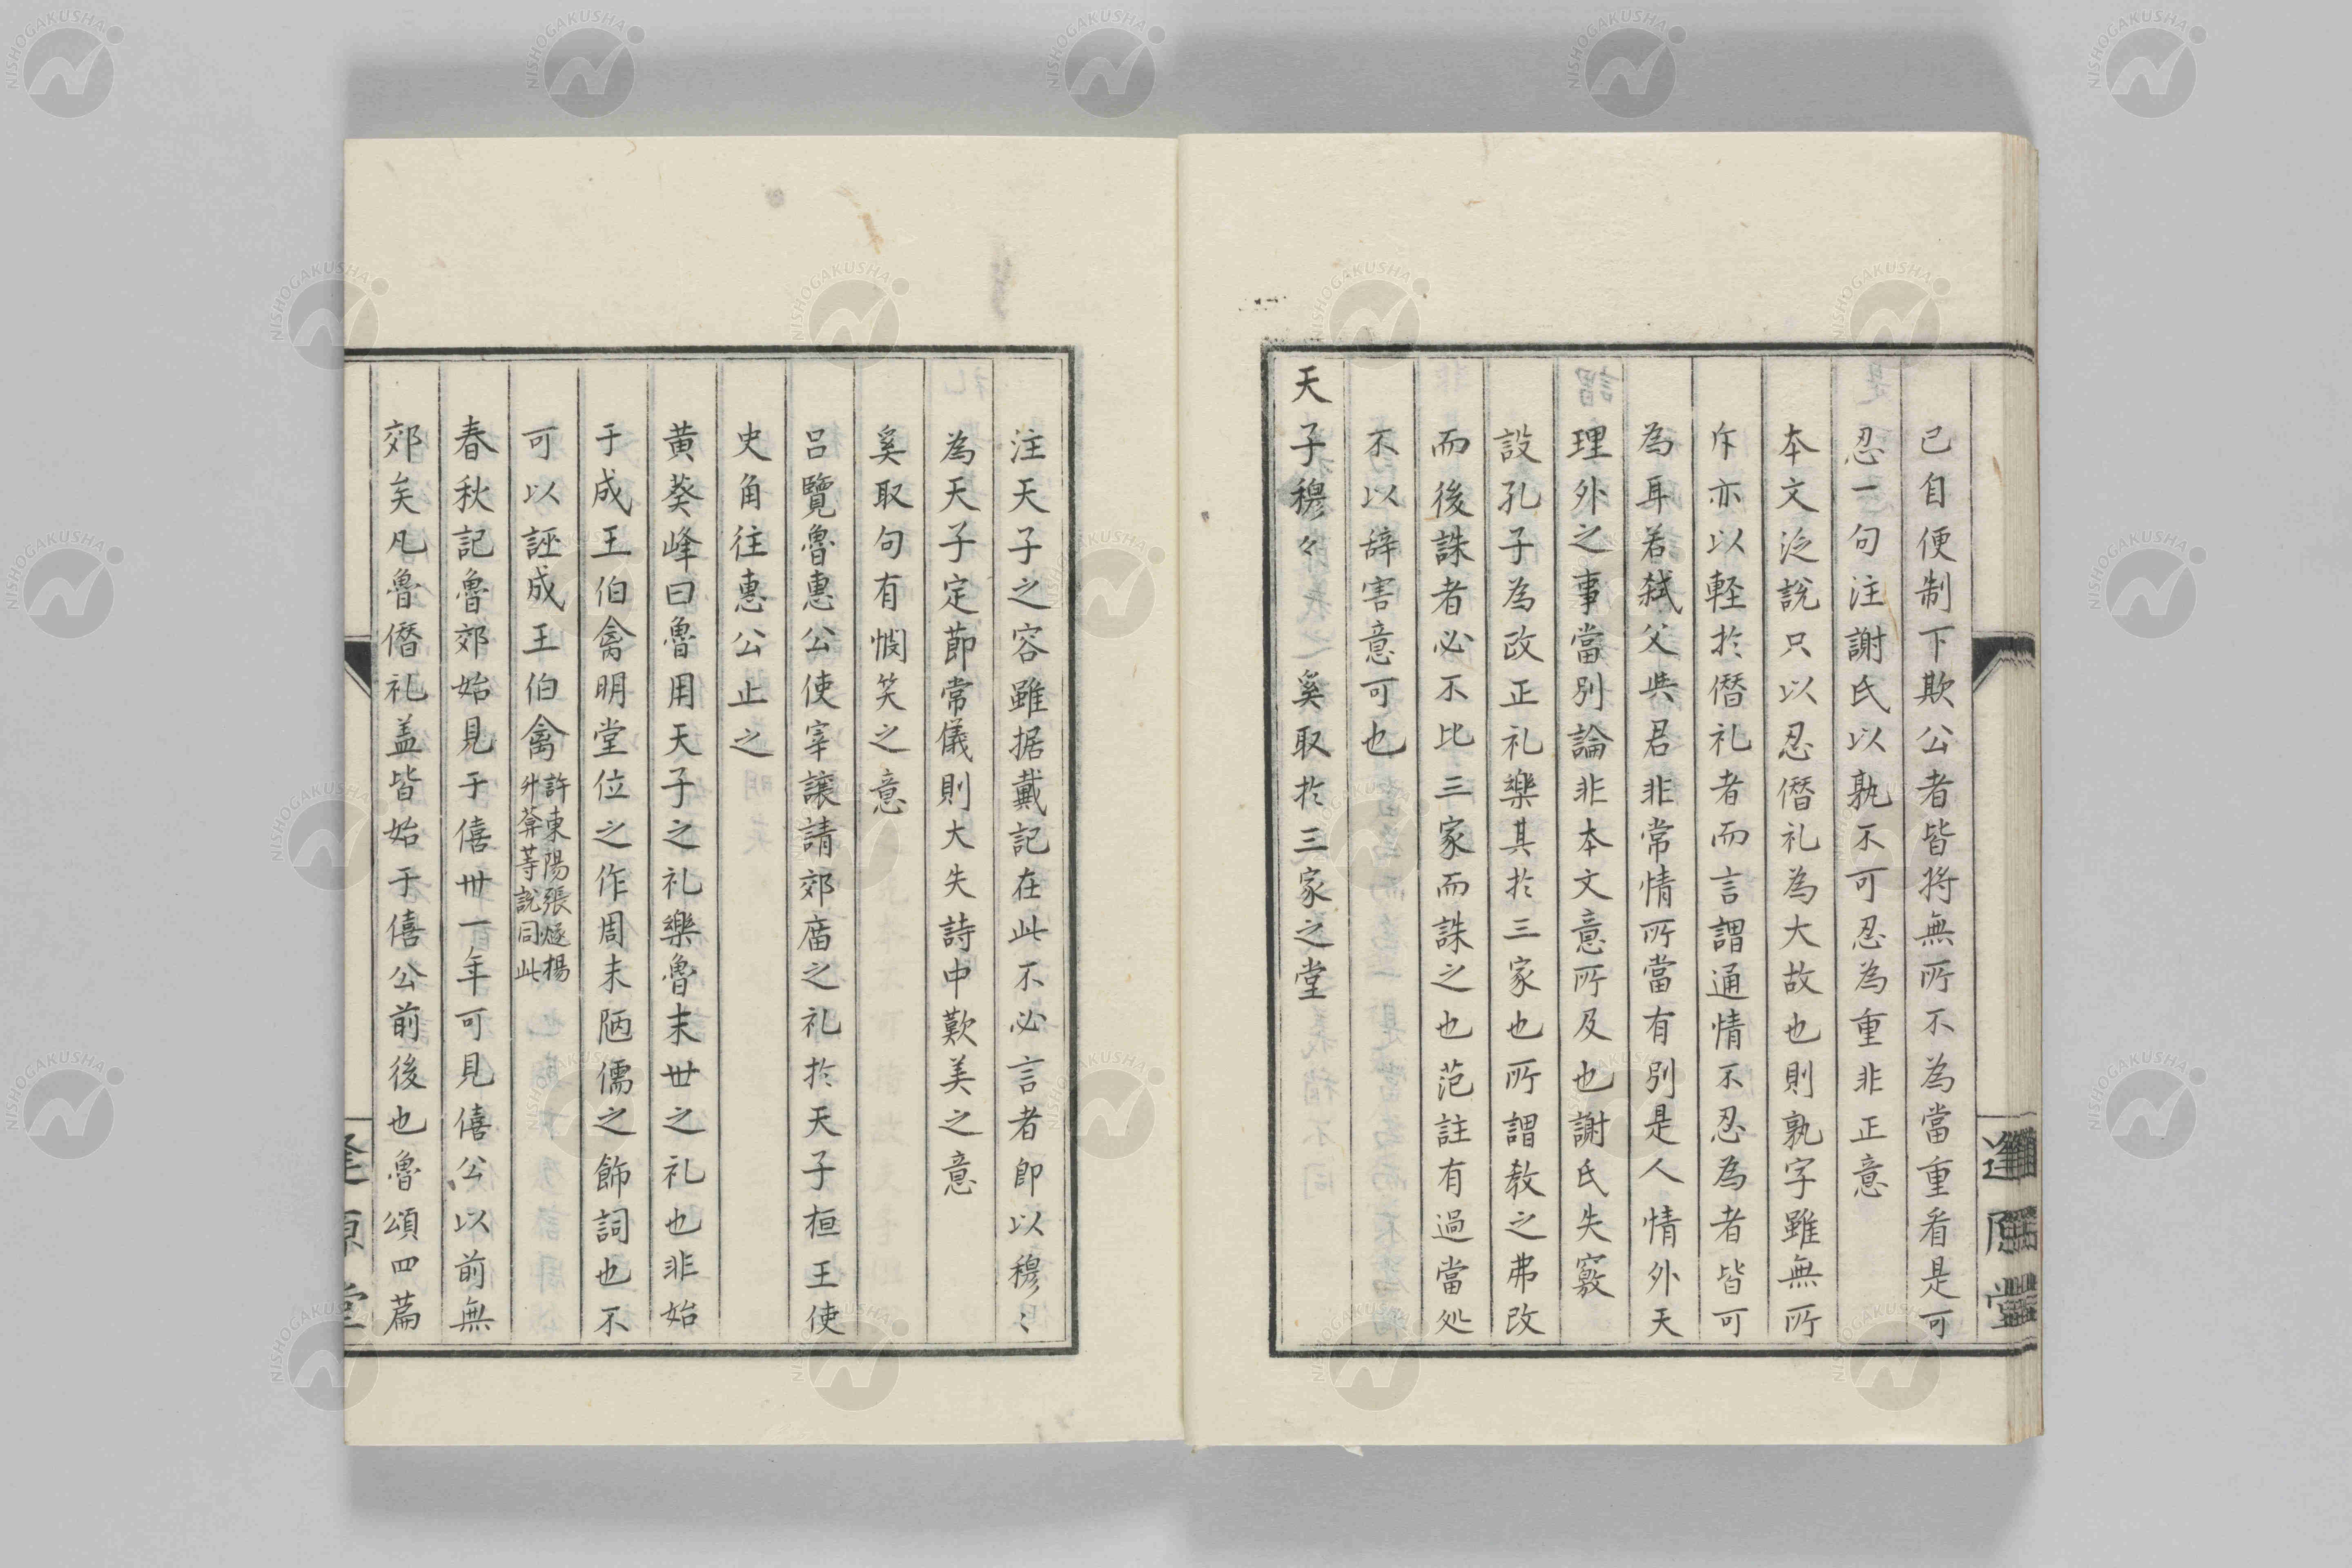 己自便制下欺公者皆将無所不為當重看是可
忍一句注謝氏以孰不可忍為重非正意
本文泛説只以忍僭礼為大故也則孰字雖無所
斥亦以軽於僭礼者而言謂通情不忍為者皆可
為耳若弑父與君非常情所當有別是人情外天
理外之事當別論非本文意所及也謝氏失竅
設孔子為政正礼樂其於三家也所謂教之弗改
而後誅者必不比三家而誅之也范註有過當処
不以辞害意可也
天子穆々 奚取於三家之堂
逢原堂
注天子之容雖据戴記在此不必言者即以穆〻
為天子定節常儀則大失詩中歎美之意
奚取句有憫笑之意
呂覽魯惠公使宰譲請郊庿之礼於天子桓王使
史角往惠公止之
黄葵峰曰魯用天子之礼樂魯末世之礼也非始
于成王伯禽明堂位之作周末陋儒之飾詞也不
可以誣成王伯禽許東陽張燧楊升菴等説同此
春秋記魯郊始見于僖卅一年可見僖公以前無
郊矣凡魯僭礼盖皆始于僖公前後也魯頌四篇
逢原堂